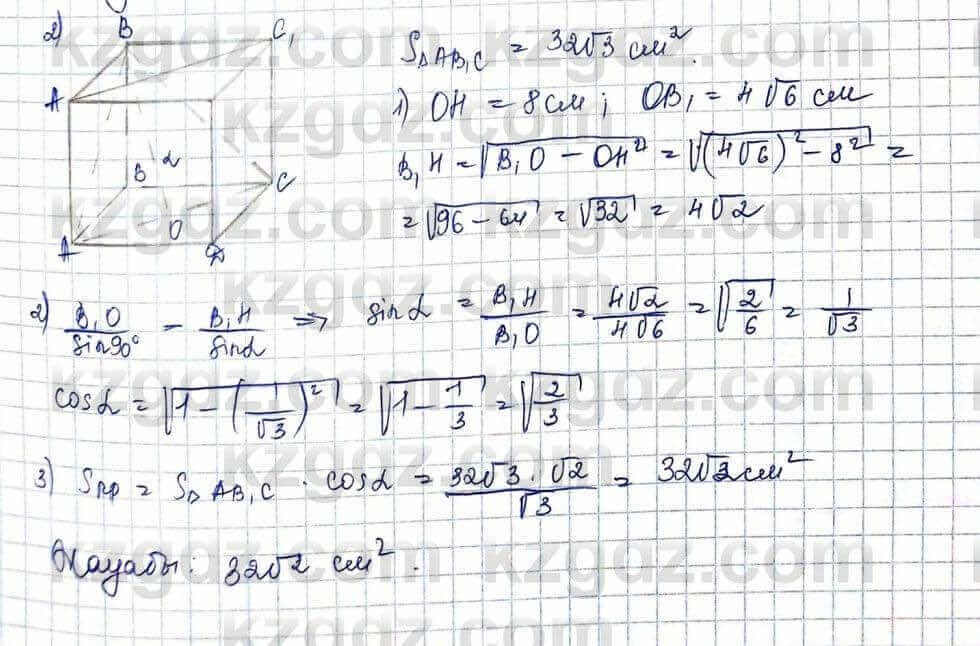 2)
B C₁
A
B α C
A O D
S△AB₁C = 32√3 см².
1) OH = 8 см; OB₁ = 4√6 см
B₁H = √(B₁O − OH²) = √((4√6)² − 8²) =
= √(96 − 64) = √32 = 4√2
2) B₁O / sin90° = B₁H / sinα => sinα = B₁H / B₁O = 4√2 / 4√6 = √(2/6) = 1/√3
cosα = √(1 − (1/√3)²) = √(1 − 1/3) = √(2/3)
3) Sпр = S△AB₁C · cosα = 32√3 · √2 / √3 = 32√2 см²
Жауабы: 32√2 см².
kzgdz.com